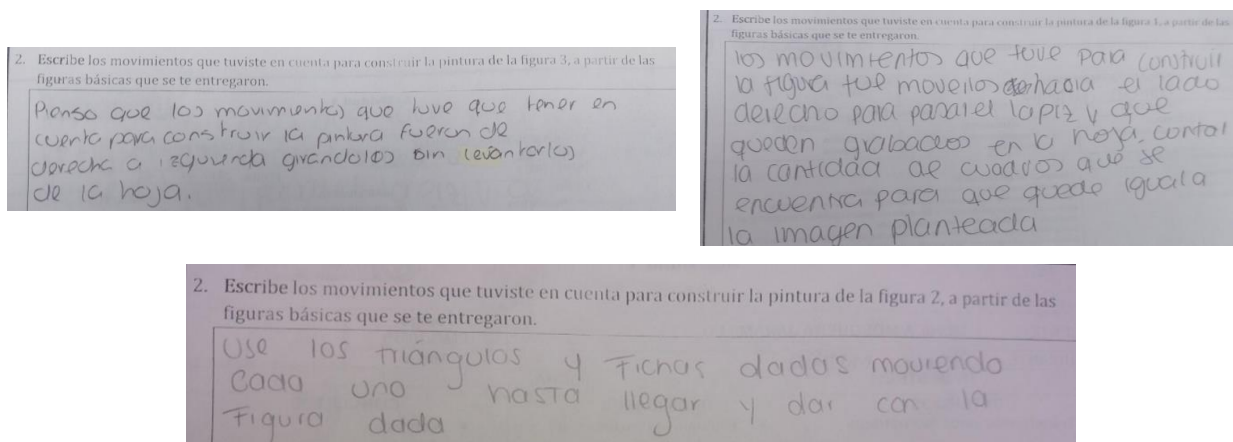 2. Escribe los movimientos que tuviste en cuenta para construir la pintura de la figura 3, a partir de las
figuras básicas que se te entregaron.
Pienso que los movimientos que tuve que tener en
cuenta para construir la pintura fueron de
derecha a izquierda girandolos sin levantarlos
de la hoja.
2. Escribe los movimientos que tuviste en cuenta para construir la pintura de la figura 1, a partir de las
figuras básicas que se te entregaron.
los movimientos que tuve para construir
la figura fue moverlos hacia el lado
derecho para pasar el lapiz y que
queden grabados en la hoja, contar
la cantidad de cuadros que se
encuentra para que quede igual a
la imagen planteada
2. Escribe los movimientos que tuviste en cuenta para construir la pintura de la figura 2, a partir de las
figuras básicas que se te entregaron.
Use los triángulos y Fichas dadas moviendo
cada uno hasta llegar y dar con la
Figura dada